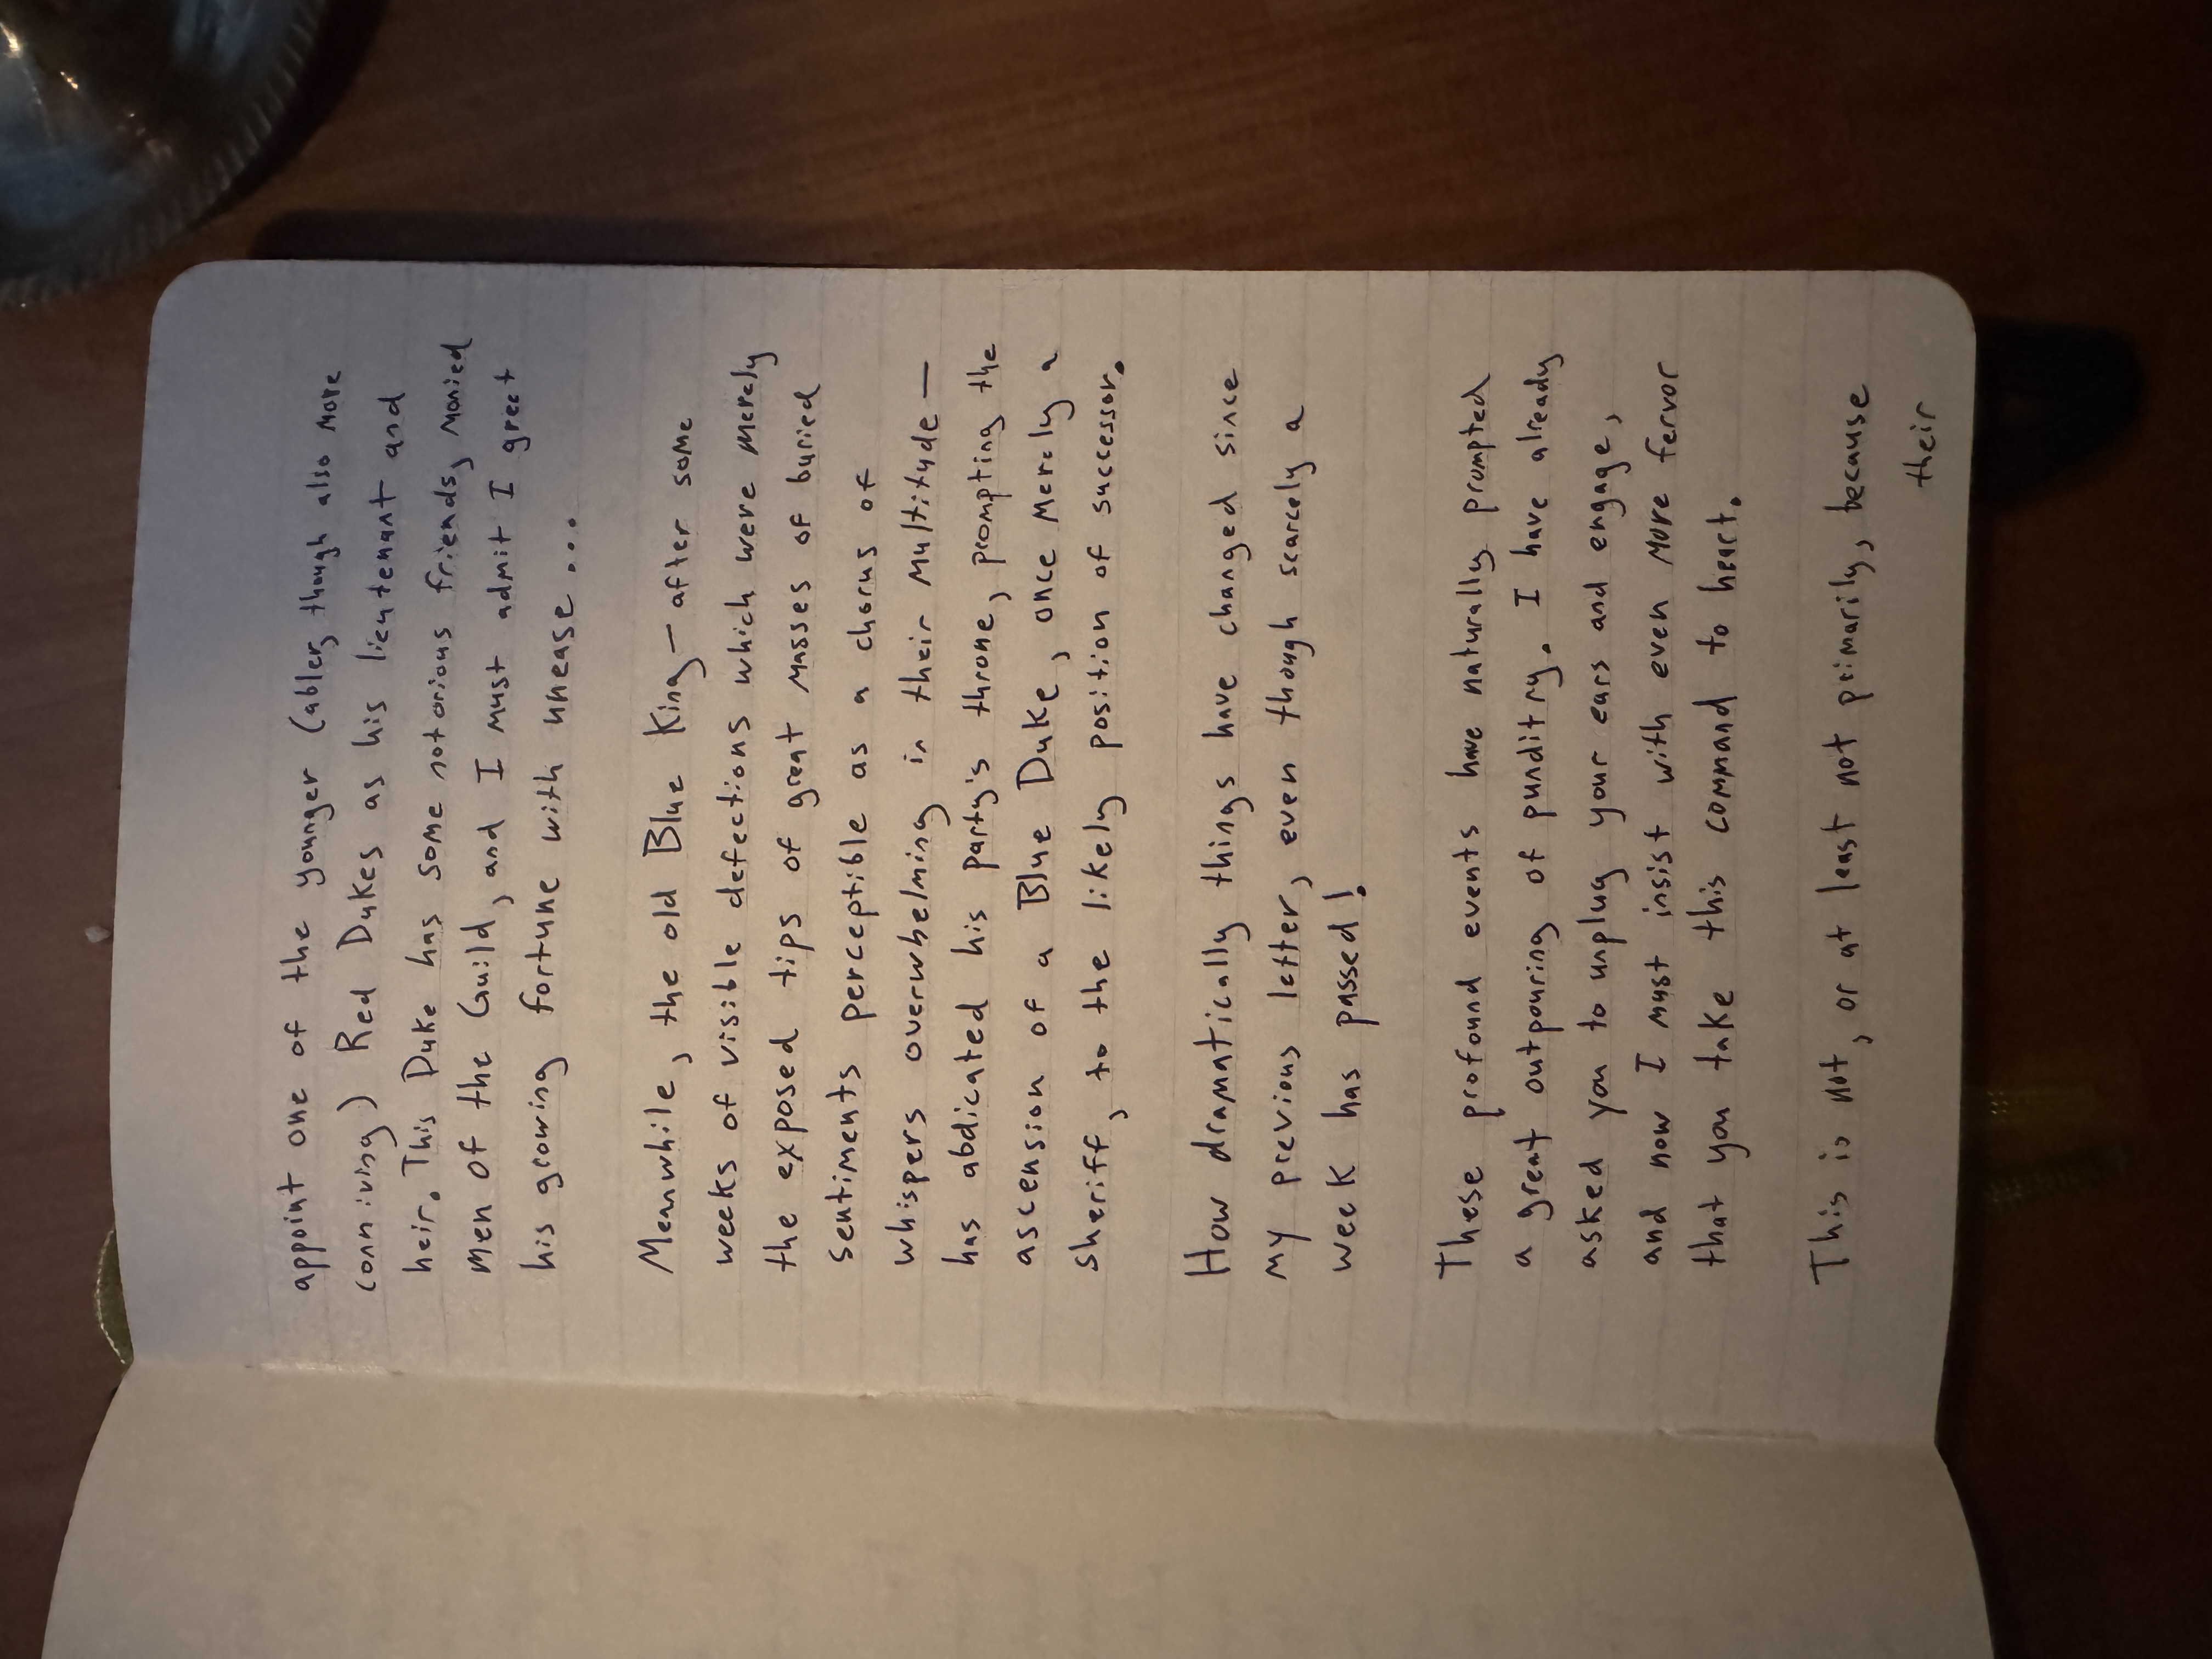 appoint one of the younger (abler, though also more
conniving) Red Dukes as his lieutenant and
heir. This Duke has some notorious friends, monied
men of the Guild, and I must admit I greet
his growing fortune with unease....
Meanwhile, the old Blue King — after some
weeks of visible defections which were merely
the exposed tips of great masses of buried
sentiments perceptible as a chorus of
whispers overwhelming in their multitude —
has abdicated his party's throne, prompting the
ascension of a Blue Duke, once merely a
sheriff, to the likely position of successor.
How dramatically things have changed since
my previous letter, even though scarcely a
week has passed!
These profound events have naturally prompted
a great outpouring of punditry. I have already
asked you to unplug your ears and engage,
and now I must insist with even more fervor
that you take this command to heart.
This is not, or at least not primarily, because
their